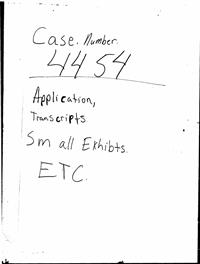 Case. Number.
4454
Application,
Transcripts
Small Exhibts.
ETC.